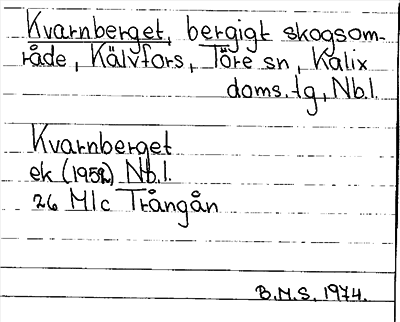 Kvarnberget, bergigt skogsom-
råde, Kälvfors, Töre sn, Kalix
doms. tg, Nb.l.
Kvarnberget
ek (1952) Nb.l.
26 M1c Trångån
B.M.S. 1974.